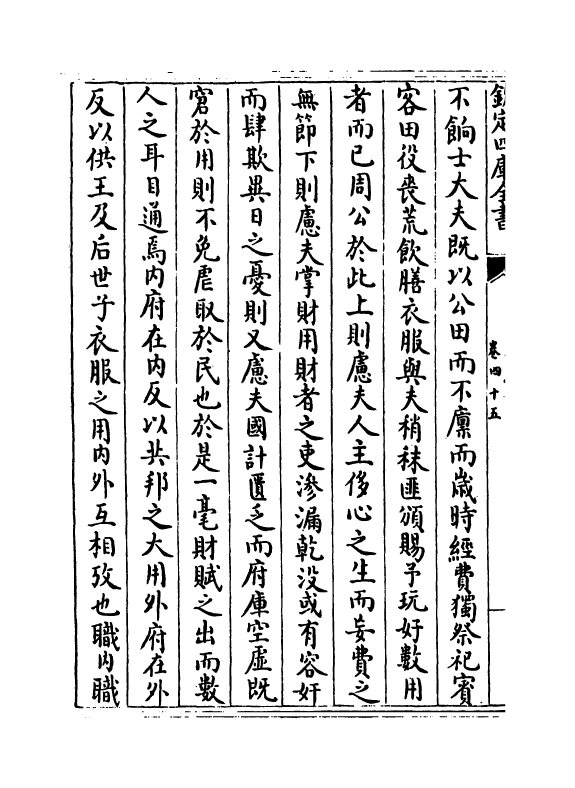 欽定四庫全書
卷四十五
不餉士大夫既以公田而不廩而歳時經費獨祭祀賓
容田役喪荒飲膳衣服與夫稍秣匪頒賜予玩好數用
者而已周公於此上則慮夫人主侈心之生而妄費之
無節下則慮夫掌財用財者之吏滲漏乾没或有容奸
而肆欺異日之憂則又慮夫國計匱乏而府庫空虚既
窘於用則不免虐取於民也於是一毫財賦之出而數
人之耳目通焉内府在内反以共邦之大用外府在外
反以供王及后世子衣服之用内外互相攷也職内職